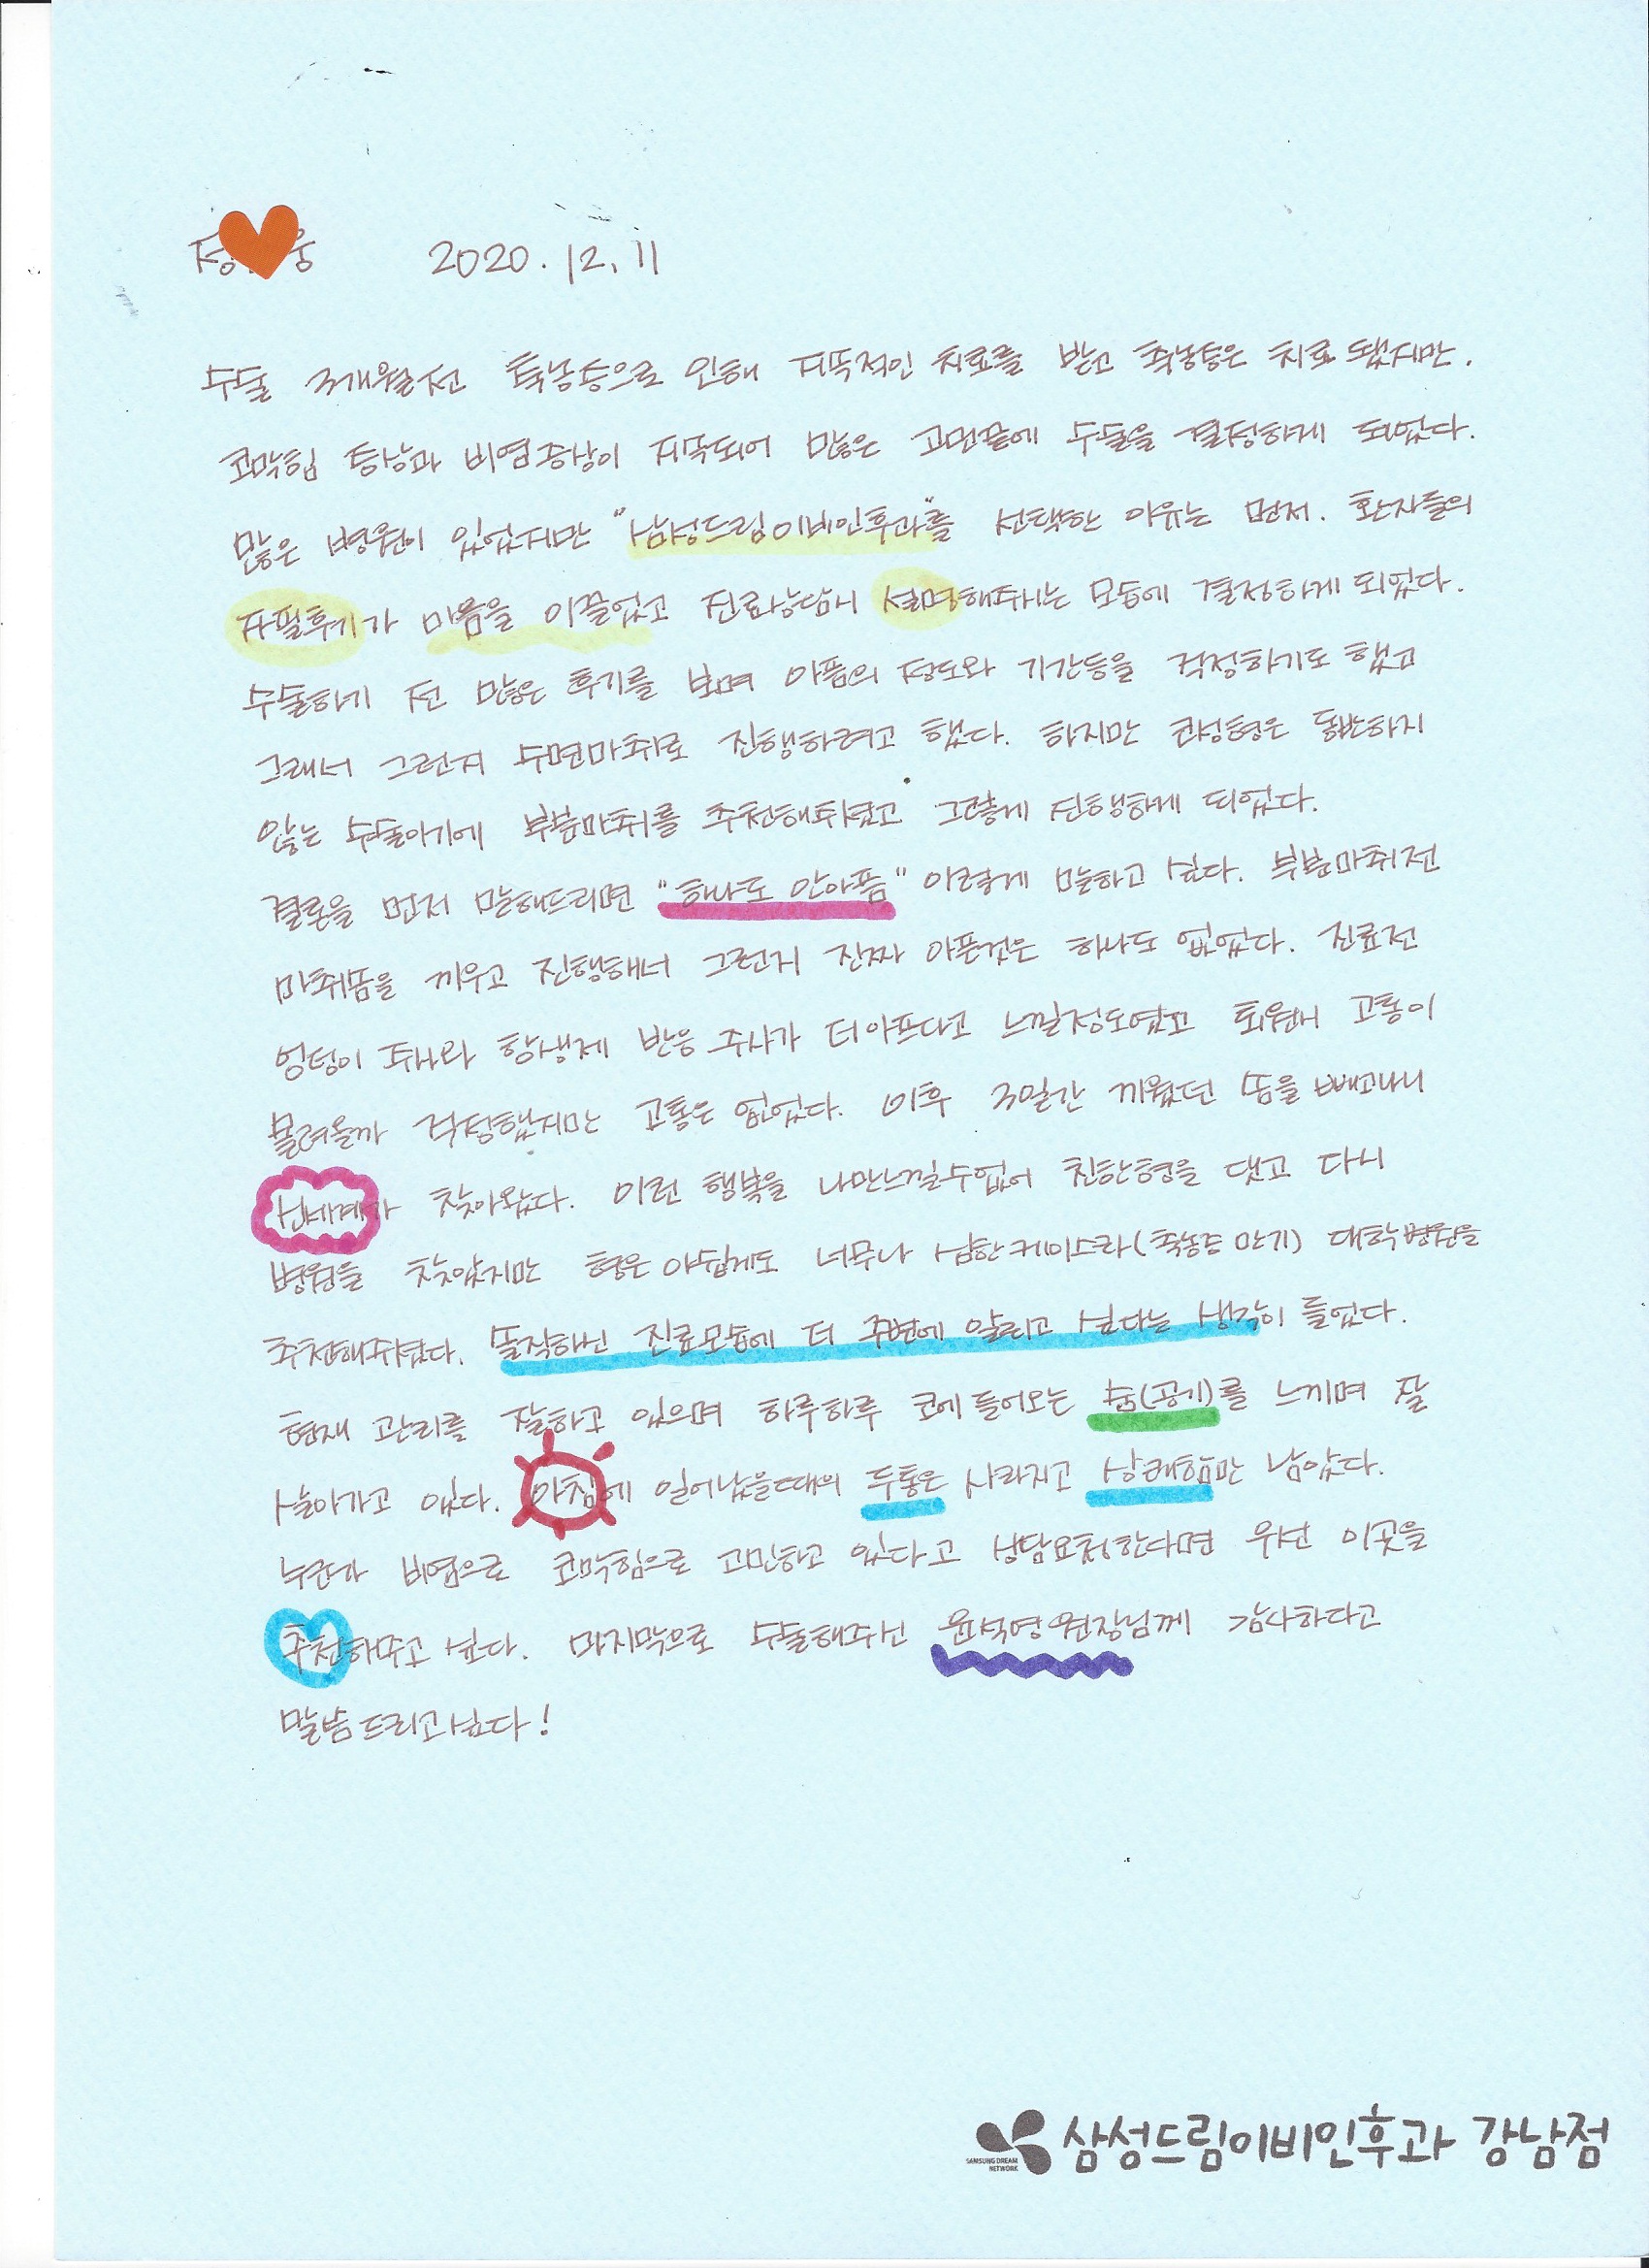 정 웅 2020. 12. 11
수술 3개월전 축농증으로 인해 지속적인 치료를 받고 축농증은 치료 됐지만.
코막힘 통상과 비염증상이 지속되어 많은 고민끝에 수술을 결정하게 되었다.
많은 병원이 있었지만 "삼성드림이비인후과"를 선택한 이유는 먼저. 환자들의
자필후기가 마음을 이끌었고 진료상담시 설명해주시는 모습에 결정하게 되었다.
수술하기 전 많은 후기를 보며 아픔의 정도와 기간등을 걱정하기도 했고
그래서 그런지 수면마취로 진행하려고 했다. 하지만 코성형은 동반하지
않는 수술이기에 부분마취를 추천해주셨고 그렇게 진행하게 되었다.
결론을 먼저 말해드리면 "하나도 안아픔" 이렇게 말하고 싶다. 부분마취전
마취솜을 끼우고 진행해서 그런지 진짜 아픈것은 하나도 없었다. 진료전
엉덩이 주사와 항생제 반응 주사가 더아프다고 느낄정도였고 퇴원시 고통이
몰려올까 걱정했지만 고통은 없었다. 이후 3일간 끼웠던 솜을 빼고나니
신세계가 찾아왔다. 이런 행복을 나만느낄수없어 친한형을 데리고 다시
병원을 찾았지만 형은 아쉽게도 너무나 심한케이스라(축농증 만기) 대학병원을
추천해주셨다. 솔직하신 진료모습에 더 주변에 알리고 싶다는 생각이 들었다.
현재 관리를 잘하고 있으며 하루하루 코에 들어오는 숨(공기)를 느끼며 잘
살아가고 있다. 아침에 일어났을때의 두통은 사라지고 상쾌함만 남았다.
누군가 비염으로 코막힘으로 고민하고 있다고 상담요청한다면 우선 이곳을
추천해주고 싶다. 마지막으로 수술해주신 윤석영원장님께 감사하다고
말씀드리고싶다!
SAMSUNG DREAM NETWORK 삼성드림이비인후과 강남점